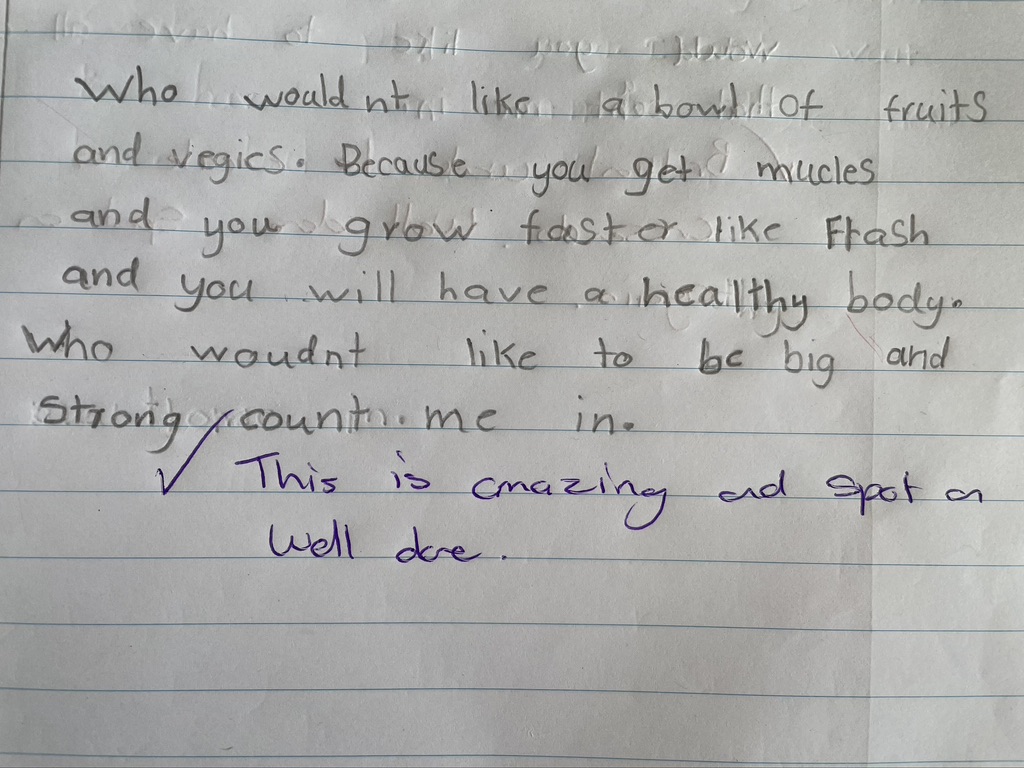 Who wouldnt like a bowl of fruits
and vegies. Because you get mucles
and you grow faster like Flash
and you will have a healthy body.
Who woudnt like to be big and
strong count me in.
✓ This is amazing and spot on
Well done.